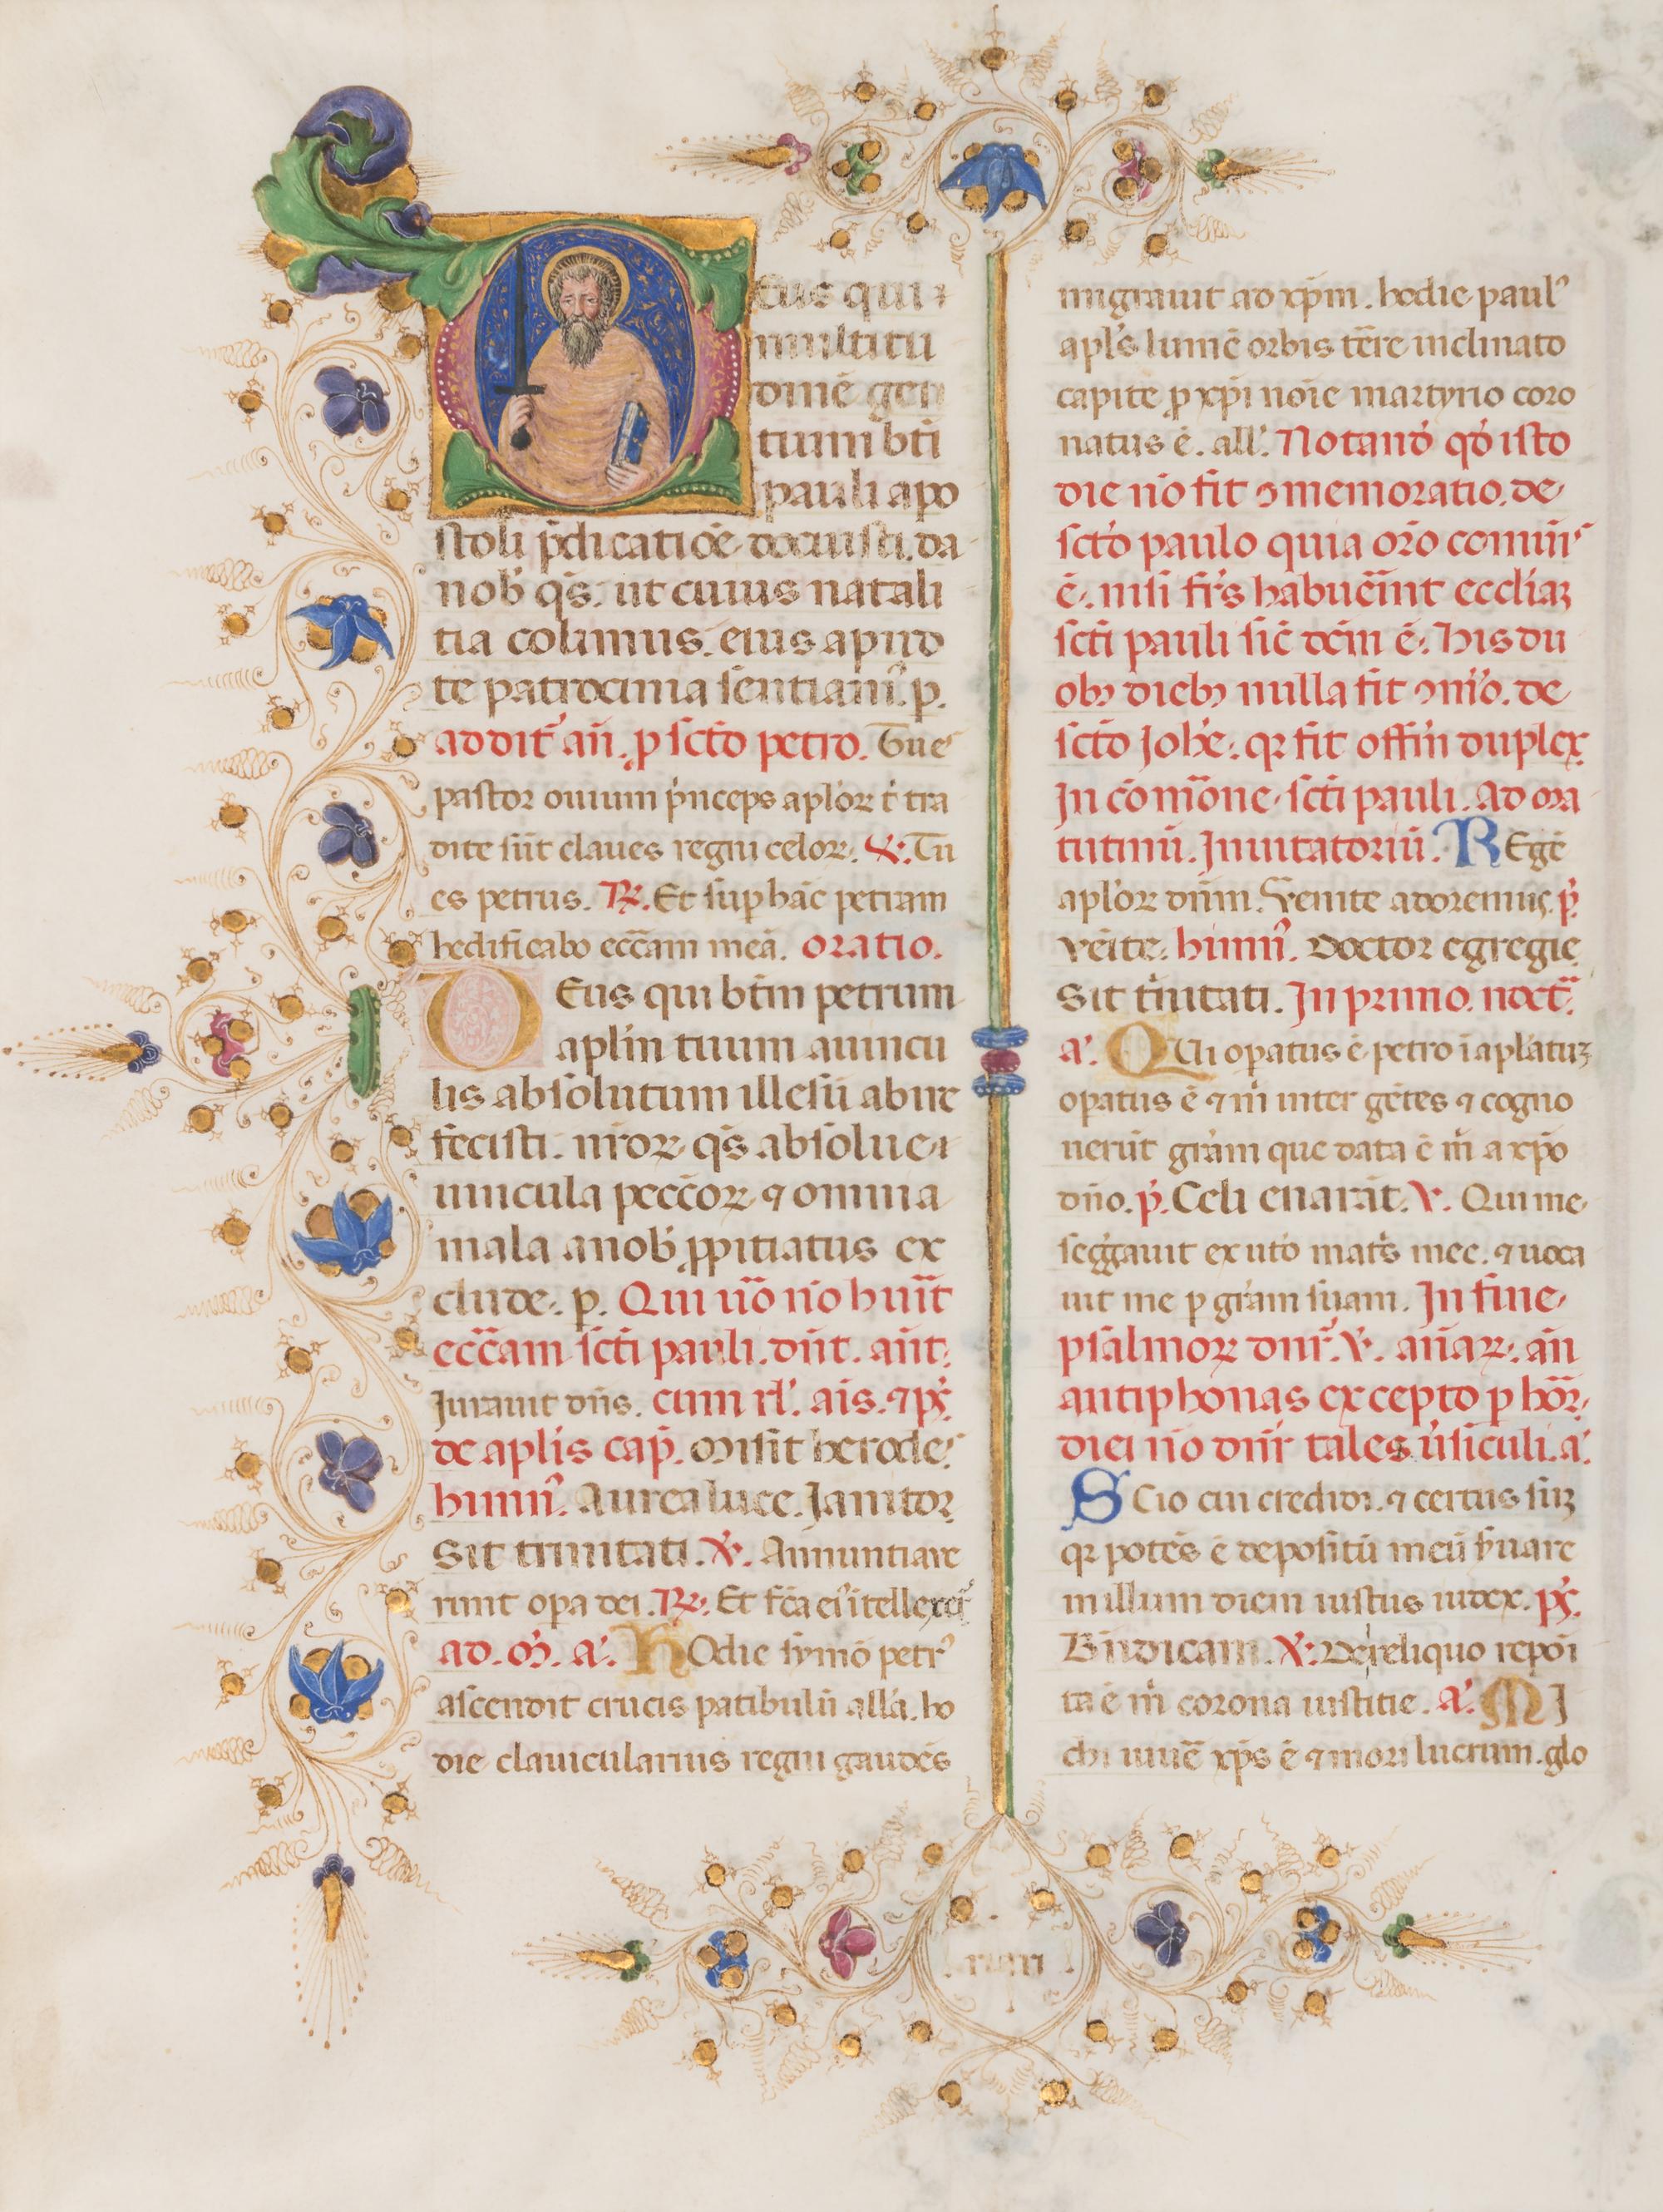 Eus qui
multitu
dinē gen
tium bt̄i
pauli apo
stoli p̄dicatiōe docuisti. da
nob̓ qs̄. ut cuius natali
tia colimus. eius apud
te patrocinia sentiam᷒. p.
ad dit̄ an̄. p sct̄o petro. Tu es
pastor ouium p̓nceps apl̓oꝝ t̓ tra
dite sūt claues regni celoꝝ. ℣. Tu
es petrus. ℟. Et sup hāc petram
hedificabo ecc̄am meā. oratio.
DEus qui bt̄m petrum
apl̄m tuum a uincu
lis absolutum illesū abire
fecisti. nr̄oꝝ qs̄ absolue
uincula pecc̄oꝝ ⁊ omnia
mala a nob̓ ꝓpitiatus ex
clude. p. Qui ūo nō hn̄t
ecc̄am sct̄i pauli. dn̄t. ant̄.
Jurauit dn̄s. cum rl̓. ais. ⁊ ps̓.
de apl̄is cap̄. Misit herodes
himn᷒. Aurea luce. Janitor
Sit trinitati. ℣. Annuntiaue
runt opa dei. ℟. Et fc̄a ei᷒ ītellexer̄t
ad. M. a᷒. HOdie symō petr᷒
ascendit crucis patibulū all̓a. ho
die clauicularius regni gaudēs
migrauit ad xp̄m. hodie paul᷒
apl̄s lumē orbis tr̄re inclinato
capite p xp̄i noīe martyrio coro
natus ē. all̓. Notand̓ qd̓ isto
die nō fit ꝯmemoratio. de
sct̄o paulo quia or̄o comūis
ē. nisi fr̄s habuer̄int eccl̓iaꝫ
sct̄i pauli sic̄ dcm̄ ē. His du
obꝫ diebꝫ nulla fit ꝯm̄o. de
sct̄o Johe̓. qꝛ fit offm̄ duplex
In cōm̄one sct̄i pauli. Ad ma
tutinū. Inuitatoriū. REgē
apl̓oꝝ dn̄m. Venite adoremus. p̓.
Veīte. himn᷒. Doctor egregie
Sit t̓nitati. In primo. noct̄.
a᷒. QUi opatus ē petro ī apl̓atuꝫ
opatus ē ⁊ m̄ inter gētes ⁊ cogno
uerūt gr̄am que data ē m̄ a xp̄o
dn̄o. p̓. Celi enarāt. ℣. Qui me
seg̓gauit ex ut̓o mat̓s mee. ⁊ uoca
uit me p gr̄am suam. In fine
psalmoꝝ dn̄r. ℣. an̄aꝝ. an̄
antiphonas excepto p hōr.
diei nō dn̄r tales ūsiculi. a᷒.
SCio cui credidi. ⁊ certus suꝫ
qꝛ potēs ē depositū meū s̓uare
in illum diem iustus iudex. ps̓.
Bn̄dicam. ℣. De reliquo repoi
ta ē m̄ corona iustitie. a᷒. MI
chi uiuē xp̄s ē ⁊ mori lucrum. glo